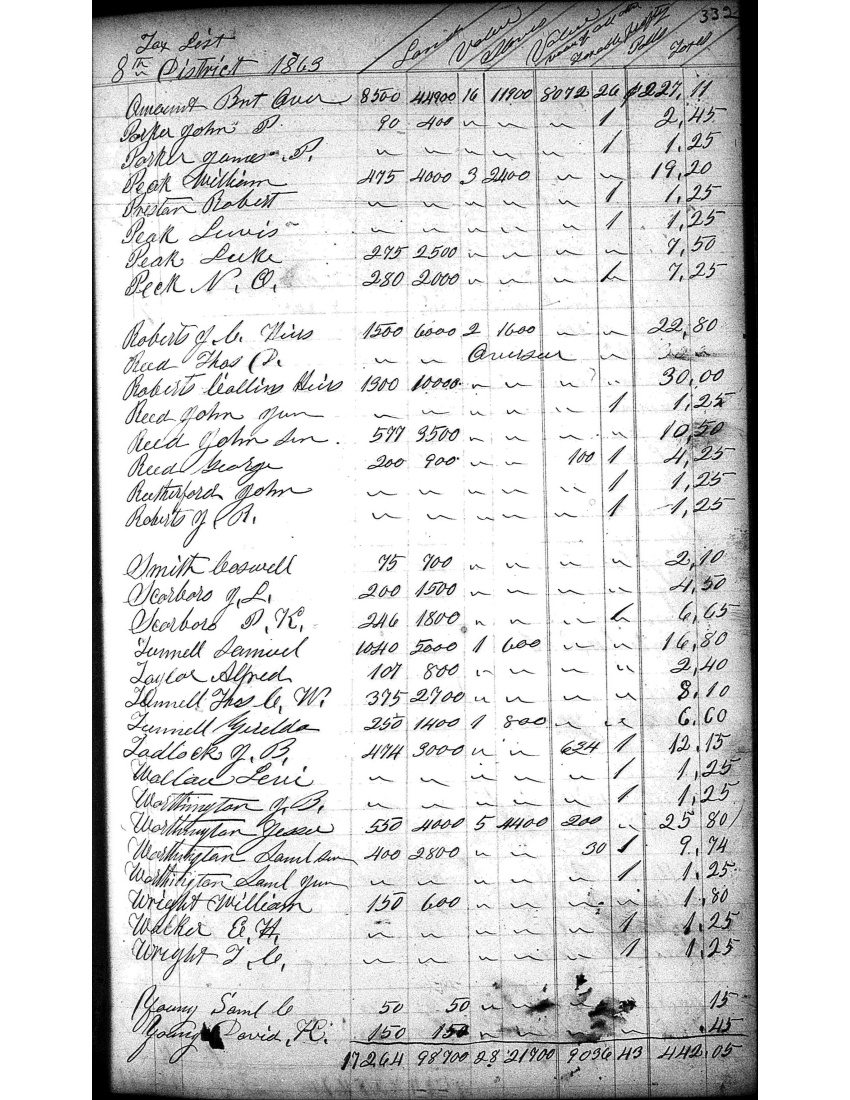 332
Tax List
8th District 1863
Land Value Slaves Value Taxable Polls Taxes
Amount Brt Over 8500 44900 16 11900 8072 26 $227,11
Parker John P. 90 400 〃 〃 〃 1 2,45
Parker James P. 〃 〃 〃 〃 〃 1 1,25
Peak William 475 4000 3 2400 〃 〃 19,20
Preston Robert 〃 〃 〃 〃 〃 1 1,25
Peak Lewis 〃 〃 〃 〃 〃 1 1,25
Peak Luke 275 2500 〃 〃 〃 〃 7,50
Peck N. O. 280 2000 〃 〃 〃 1 7,25
Roberts J. C. Heirs 1500 6000 2 1600 〃 〃 22,80
Reed Thos P. 〃 〃 Overseer 〃
Roberts Collins Heirs 1900 10000 〃 〃 〃 〃 30,00
Reed John Jun 〃 〃 〃 〃 〃 1 1,25
Reed John Sen. 577 3500 〃 〃 〃 〃 10,50
Reed George 200 900 〃 〃 100 1 4,25
Rutherford John 〃 〃 〃 〃 〃 1 1,25
Roberts J. R. 〃 〃 〃 〃 〃 1 1,25
Smith Coswell 75 700 〃 〃 〃 〃 2,10
Scarboro J. L. 200 1500 〃 〃 〃 〃 4,50
Scarboro P. K. 246 1800 〃 〃 〃 1 6,65
Tunnell Samuel 1040 5000 1 600 〃 〃 16,80
Taylor Alfred 107 800 〃 〃 〃 〃 2,40
Tunnell Thos C. W. 375 2700 〃 〃 〃 〃 8,10
Tunnell Girelda 250 1400 1 800 〃 〃 6,60
Tadlock J. B. 474 3000 〃 〃 634 1 12,15
Wallace Levi 〃 〃 〃 〃 〃 1 1,25
Worthington J. B. 〃 〃 〃 〃 〃 1 1,25
Worthington Jesse 550 4000 5 4400 200 〃 25 80
Worthington Saml Sen 400 2800 〃 〃 30 1 9,74
Worthington Saml Jun 〃 〃 〃 〃 〃 1 1,25
Wright William 150 600 〃 〃 〃 〃 1,80
Walker E. H. 〃 〃 〃 〃 〃 1 1,25
Wright T. C. 〃 〃 〃 〃 〃 1 1,25
Young Saml C 50 50 〃 〃 〃 15
Young David. K. 150 150 〃 〃 〃 〃 .45
17264 98700 28 21700 9036 43 442,05